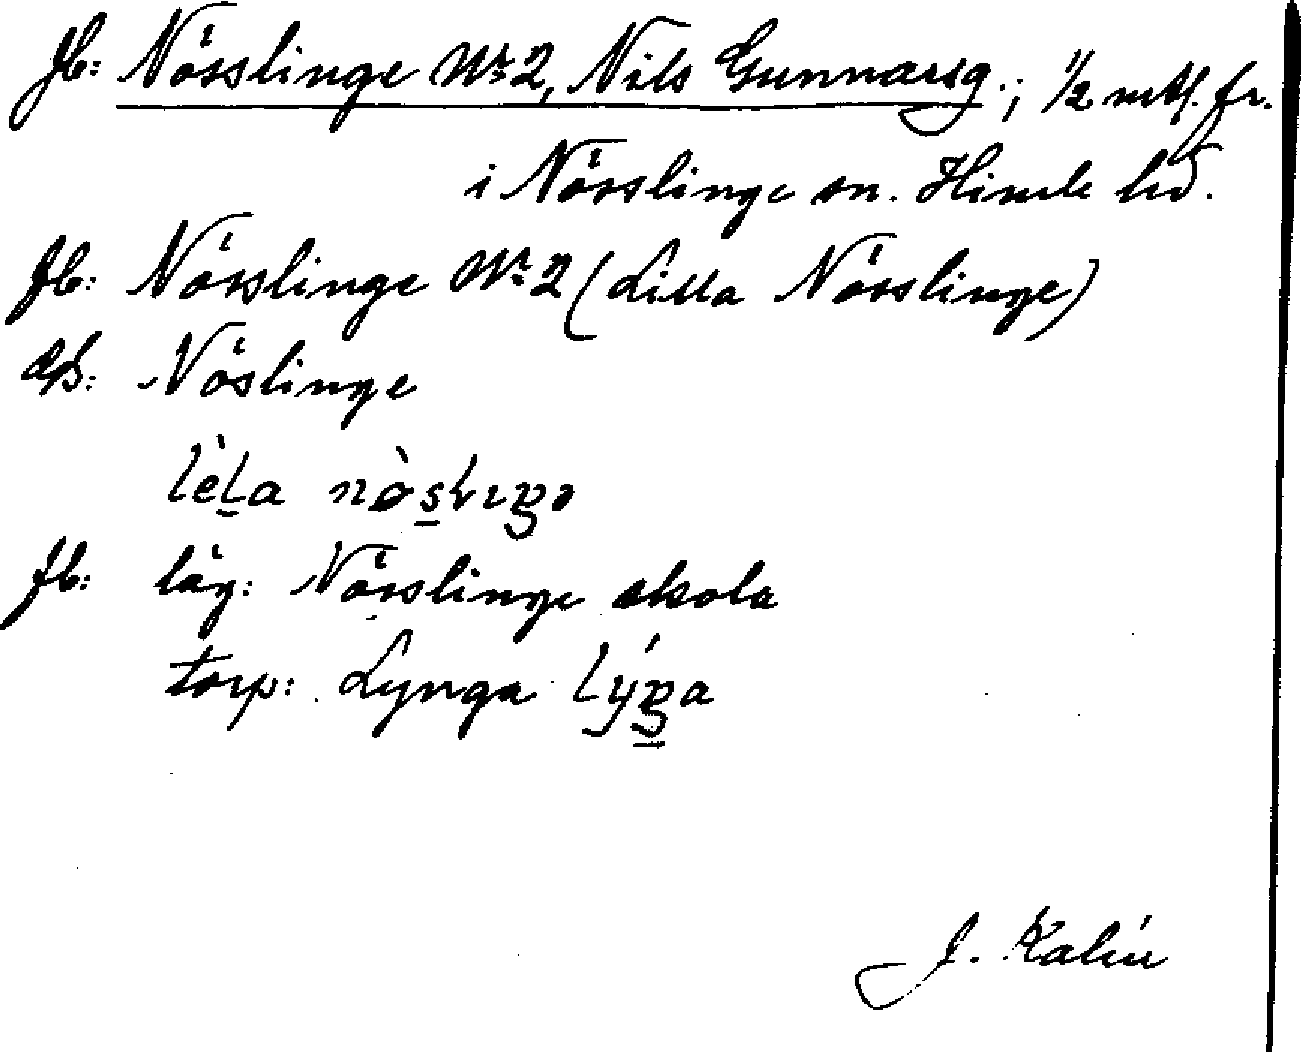 Jb: Nösslinge Nr 2, Nils Gunnarsg.; 1/2 mtl. fr.
i Nösslinge sn. Himle hd.
Jb: Nösslinge Nr 2 (Lilla Nösslinge)
Nöslinge
lèla
Jb: läg: Nösslinge skola
torp: Lynga
J. Kalén